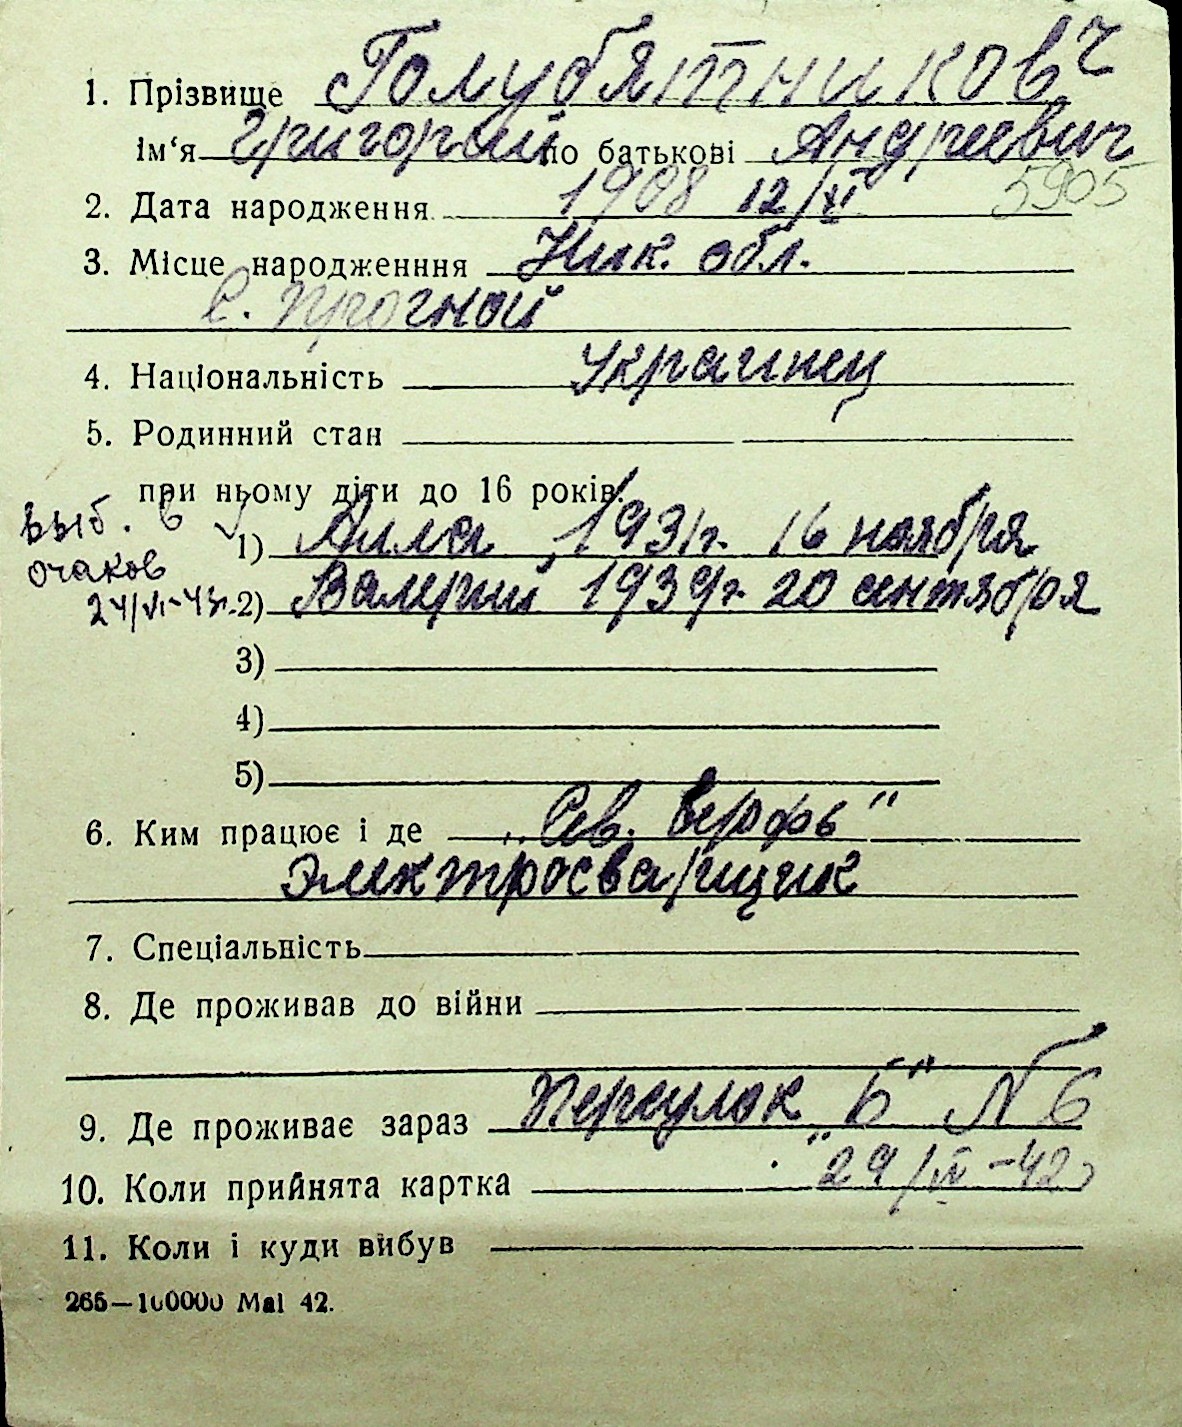 1. Прізвище Голубятников ч
ім‘я Григорий по батькові Андреевич
5905
2. Дата народження 1908 12/XI
3. Місце народженння Ник. обл.
с. Прогной
4. Національність Украинец
5. Родинний стан
при ньому діти до 16 років:
выб. в
очаков
1) Алла 1931г. 16 ноября
2) Валерий 1939г. 20 сентября
3)
4)
5)
6. Ким працює і де „Сев. верфь"
электросварщик
7. Спеціальність
8. Де проживав до війни
9. Де проживає зараз переулок "Б" № 6
10. Коли прийнята картка 29/IV-42
11. Коли і куди вибув
265—100000 Mai 42.